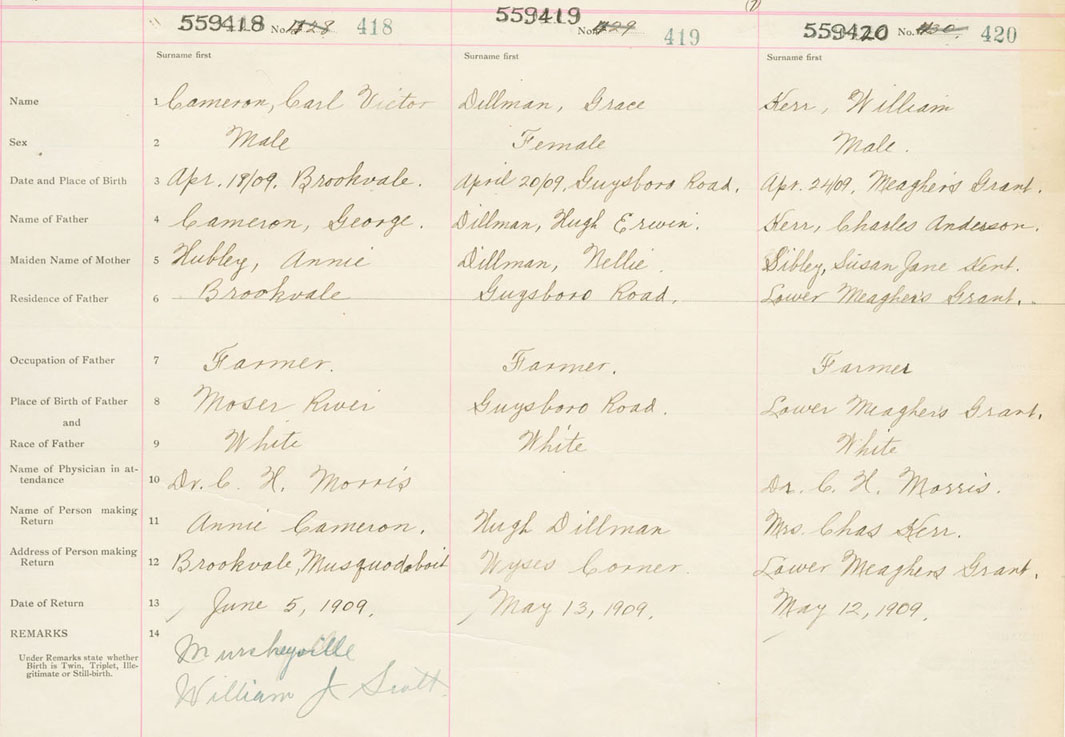 (7)
559418 No. 418
559419 No. 419
559420 No. 420
Surname first Surname first Surname first
Name 1 Cameron, Carl Victor Dillman, Grace Kerr, William
Sex 2 Male Female Male.
Date and Place of Birth 3 Apr. 18/09. Brookvale. April 20/09, Guysboro Road. Apr. 24/09, Meagher's Grant.
Name of Father 4 Cameron, George. Dillman, Hugh Erwin. Kerr, Charles Anderson.
Maiden Name of Mother 5 Hubley, Annie Dillman, Nellie. Sibley, Susan Jane Kent.
Residence of Father 6 Brookvale Guysboro Road. Lower Meagher's Grant.
Occupation of Father 7 Farmer. Farmer. Farmer
Place of Birth of Father 8 Moser River Guysboro Road. Lower Meagher's Grant.
and
Race of Father 9 White White White
Name of Physician in at-
tendance 10 Dr. C. H. Morris Dr. C. H. Morris.
Name of Person making
Return 11 Annie Cameron. Hugh Dillman Mrs. Chas Kerr.
Address of Person making
Return 12 Brookvale, Musquodoboit Wyses Corner. Lower Meagher's Grant.
Date of Return 13 June 5, 1909. May 13, 1909. May 12, 1909.
REMARKS 14
Under Remarks state whether
Birth is Twin, Triplet, Ille-
gitimate or Still-birth.
William J Scott.